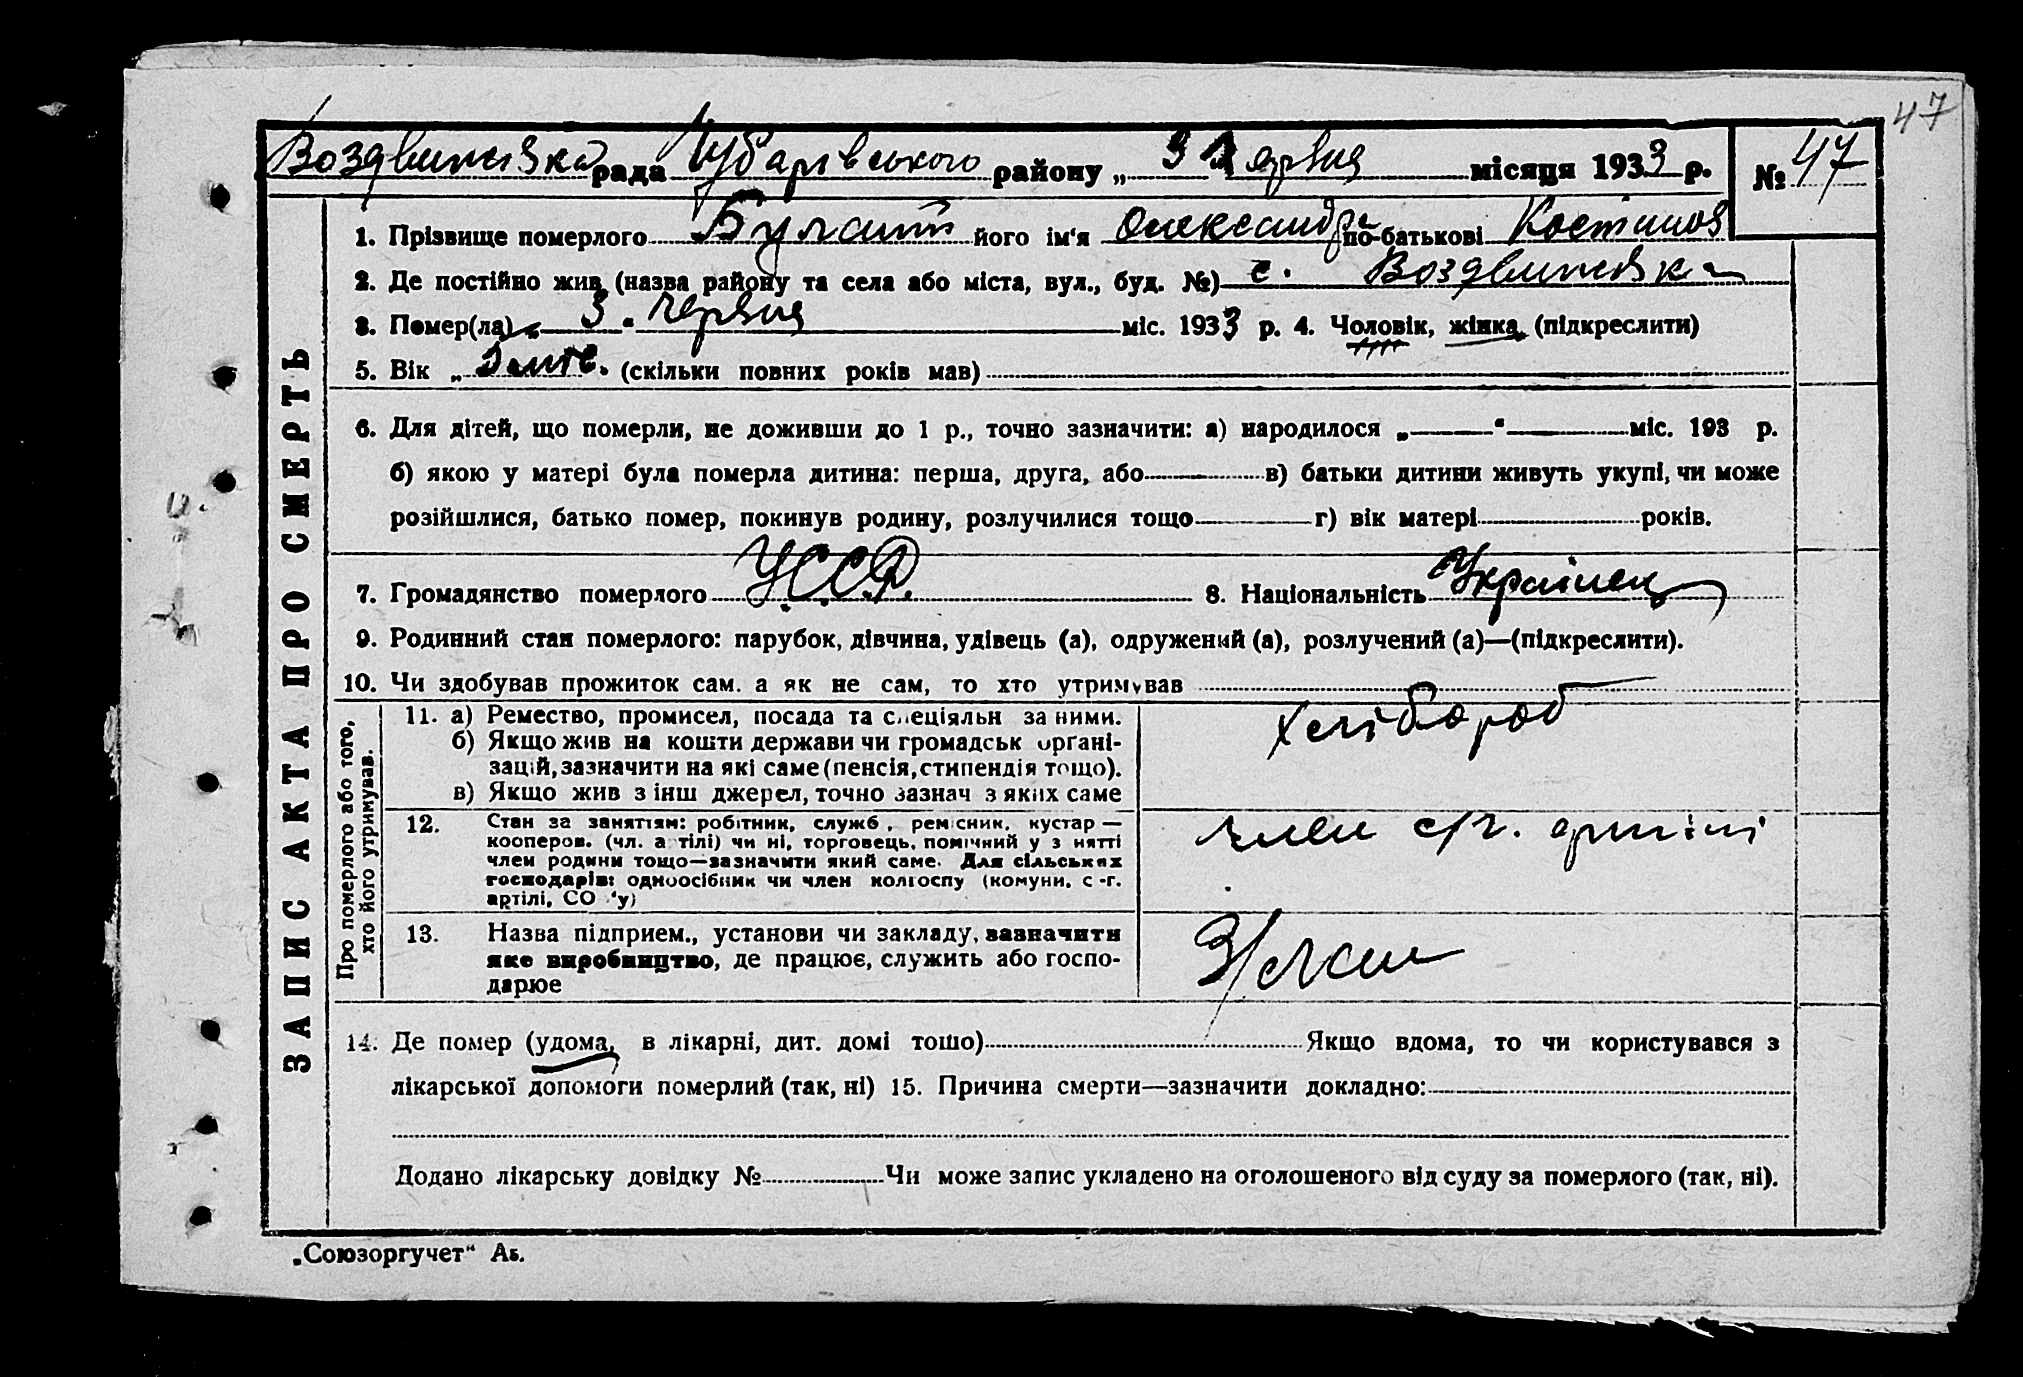 47
Воздвиженська рада Чубарівського району „ 3 " червня місяця 1933 р. № 47
1. Прізвище померлого його ім'я Олександра по-батькові
2. Де постійно жив (назва району та села або міста, вул., буд. №) с. Воздвиженка
3. Помер(ла) „ 3 " червня міс. 1933 р. 4. Чоловік, жінка (підкреслити)
5. Вік „ " (скільки повних років мав)
6. Для дітей, що померли, не доживши до 1 р., точно зазначити: а) народилося „ " міс. 193 р.
б) якою у матері була померла дитина: перша, друга, або в) батьки дитини живуть укупі, чи може
розійшлися, батько помер, покинув родину, розлучилися тощо г) вік матері років.
7. Громадянство померлого У.С.С.Р. 8. Національність Українец
9. Родинний стан померлого: парубок, дівчина, удівець (а), одружений (а), розлучений (а)—(підкреслити).
10. Чи здобував прожиток сам, а як не сам, то хто утримував
ЗАПИС АКТА ПРО СМЕРТЬ
Про померлого або того,
хто його утримував.
11. а) Ремество, промисел, посада та спеціяльн за ними. Хлібороб
б) Якщо жив на кошти держави чи громадськ органі-
зацій, зазначити на які саме (пенсія, стипендія тощо).
в) Якщо жив з інш джерел, точно зазнач з яких саме
12. Стан за заняттям: робітник, служб., ремісник, кустар— член с/г. артілі
кооперов. (чл. артілі) чи ні, торговець, помічний у з нятті
член родини тощо—зазначити який саме. Для сільських
господарів: одноосібник чи член колгоспу (комуни, с.-г.
артілі, СО у)
13. Назва підприєм., установи чи закладу, зазначити
яке виробництво, де працює, служить або госпо-
дарює
14. Де помер (удома, в лікарні, дит. домі тощо) Якщо вдома, то чи користувався з
лікарської допомоги померлий (так, ні) 15. Причина смерти—зазначити докладно:
Додано лікарську довідку № Чи може запис укладено на оголошеного від суду за померлого (так, ні).
„Союзоргучет" Аб.